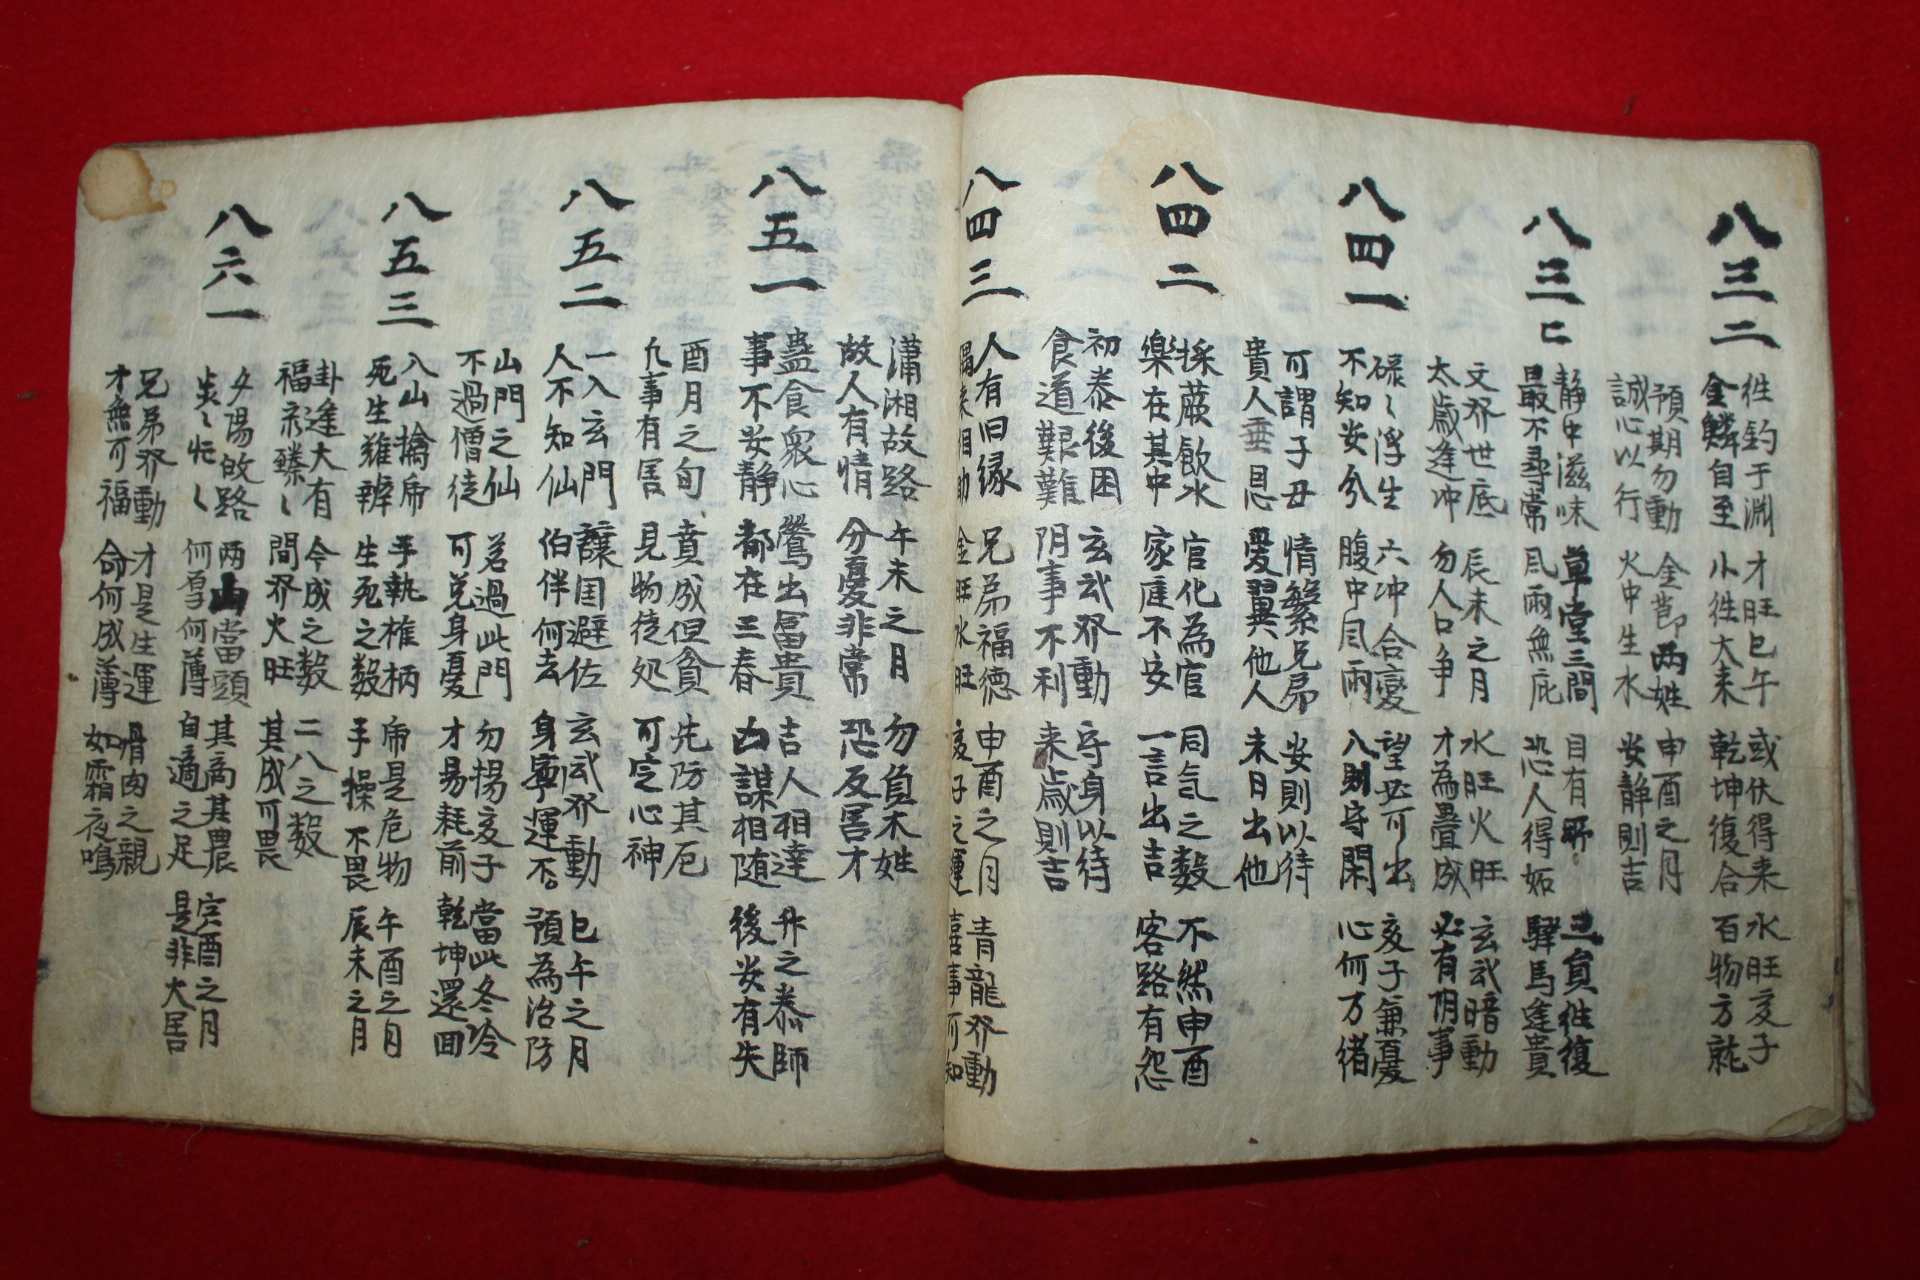 八三二
徃釣于淵 才旺巳午 或伏得来 水旺亥子
金鱗自至 小徃大来 乾坤復合 百物方就
預期勿動 金節両姓 申酉之月
誠心以行 火中生水 安静則吉
八三
静中滋味 草堂三間 目有 三負徃復
最不尋常 風雨無庇 恐人得妬 驛馬逢貴
文爻世底 辰未之月 水旺火旺 玄武暗動
太歳逢冲 勿人口争 才為疊成 必有阴事
八四一
碌〻浮生 六冲合變 望 可出 亥子兼憂
不知安分 腹中風雨 入則守閑 心何万緒
可謂子丑 情繁兄弟 安則以待
貴人垂恩 愛翼他人 未日出他
八四二
採蕨飲水 官化為官 同气之数 不然申酉
樂在其中 家庭不安 一言出吉 客路有怨
初泰後困 玄武爻動 守身以待
食道艱難 阴事不利 来歳則吉
八四三
人有旧縁 兄弟福德 申酉之月 青龍爻動
偶来相助 金旺水旺 亥子之運 喜事可知
瀟湘故路 午未之月 勿負木姓
故人有情 分憂非常 恐反害才
八五一
蠱食衆心 鶯出冨貴 吉人相達 升之泰師
事不安静 都在三春 凶謀相随 後安有失
酉月之旬 賁成但貪 先防其厄
凡事有害 見物徒処 可定心神
八五二
一入玄門 讓国避佐 玄武爻動 巳午之月
人不知仙 伯伴何去 身寧運否 預為治防
山門之仙 若過此門 勿揚亥子 當此冬冷
不過僧徒 可免身憂 才易耗前 乾坤還回
八五三
入山擒虎 手執権柄 虎是危物 午酉之月
死生難辨 生死之数 手操不畏 辰未之月
卦逢大有 今成之数 二八之数
福来臻〻 間爻火旺 其成可畏
八六一
夕陽故路 両山當頭 其高其農 害酉之月
炎〻忙〻 何厚何薄 自適之足 是非大害
兄弟爻動 才是生運 骨肉之親
才無可福 命何成薄 如霜夜鳴